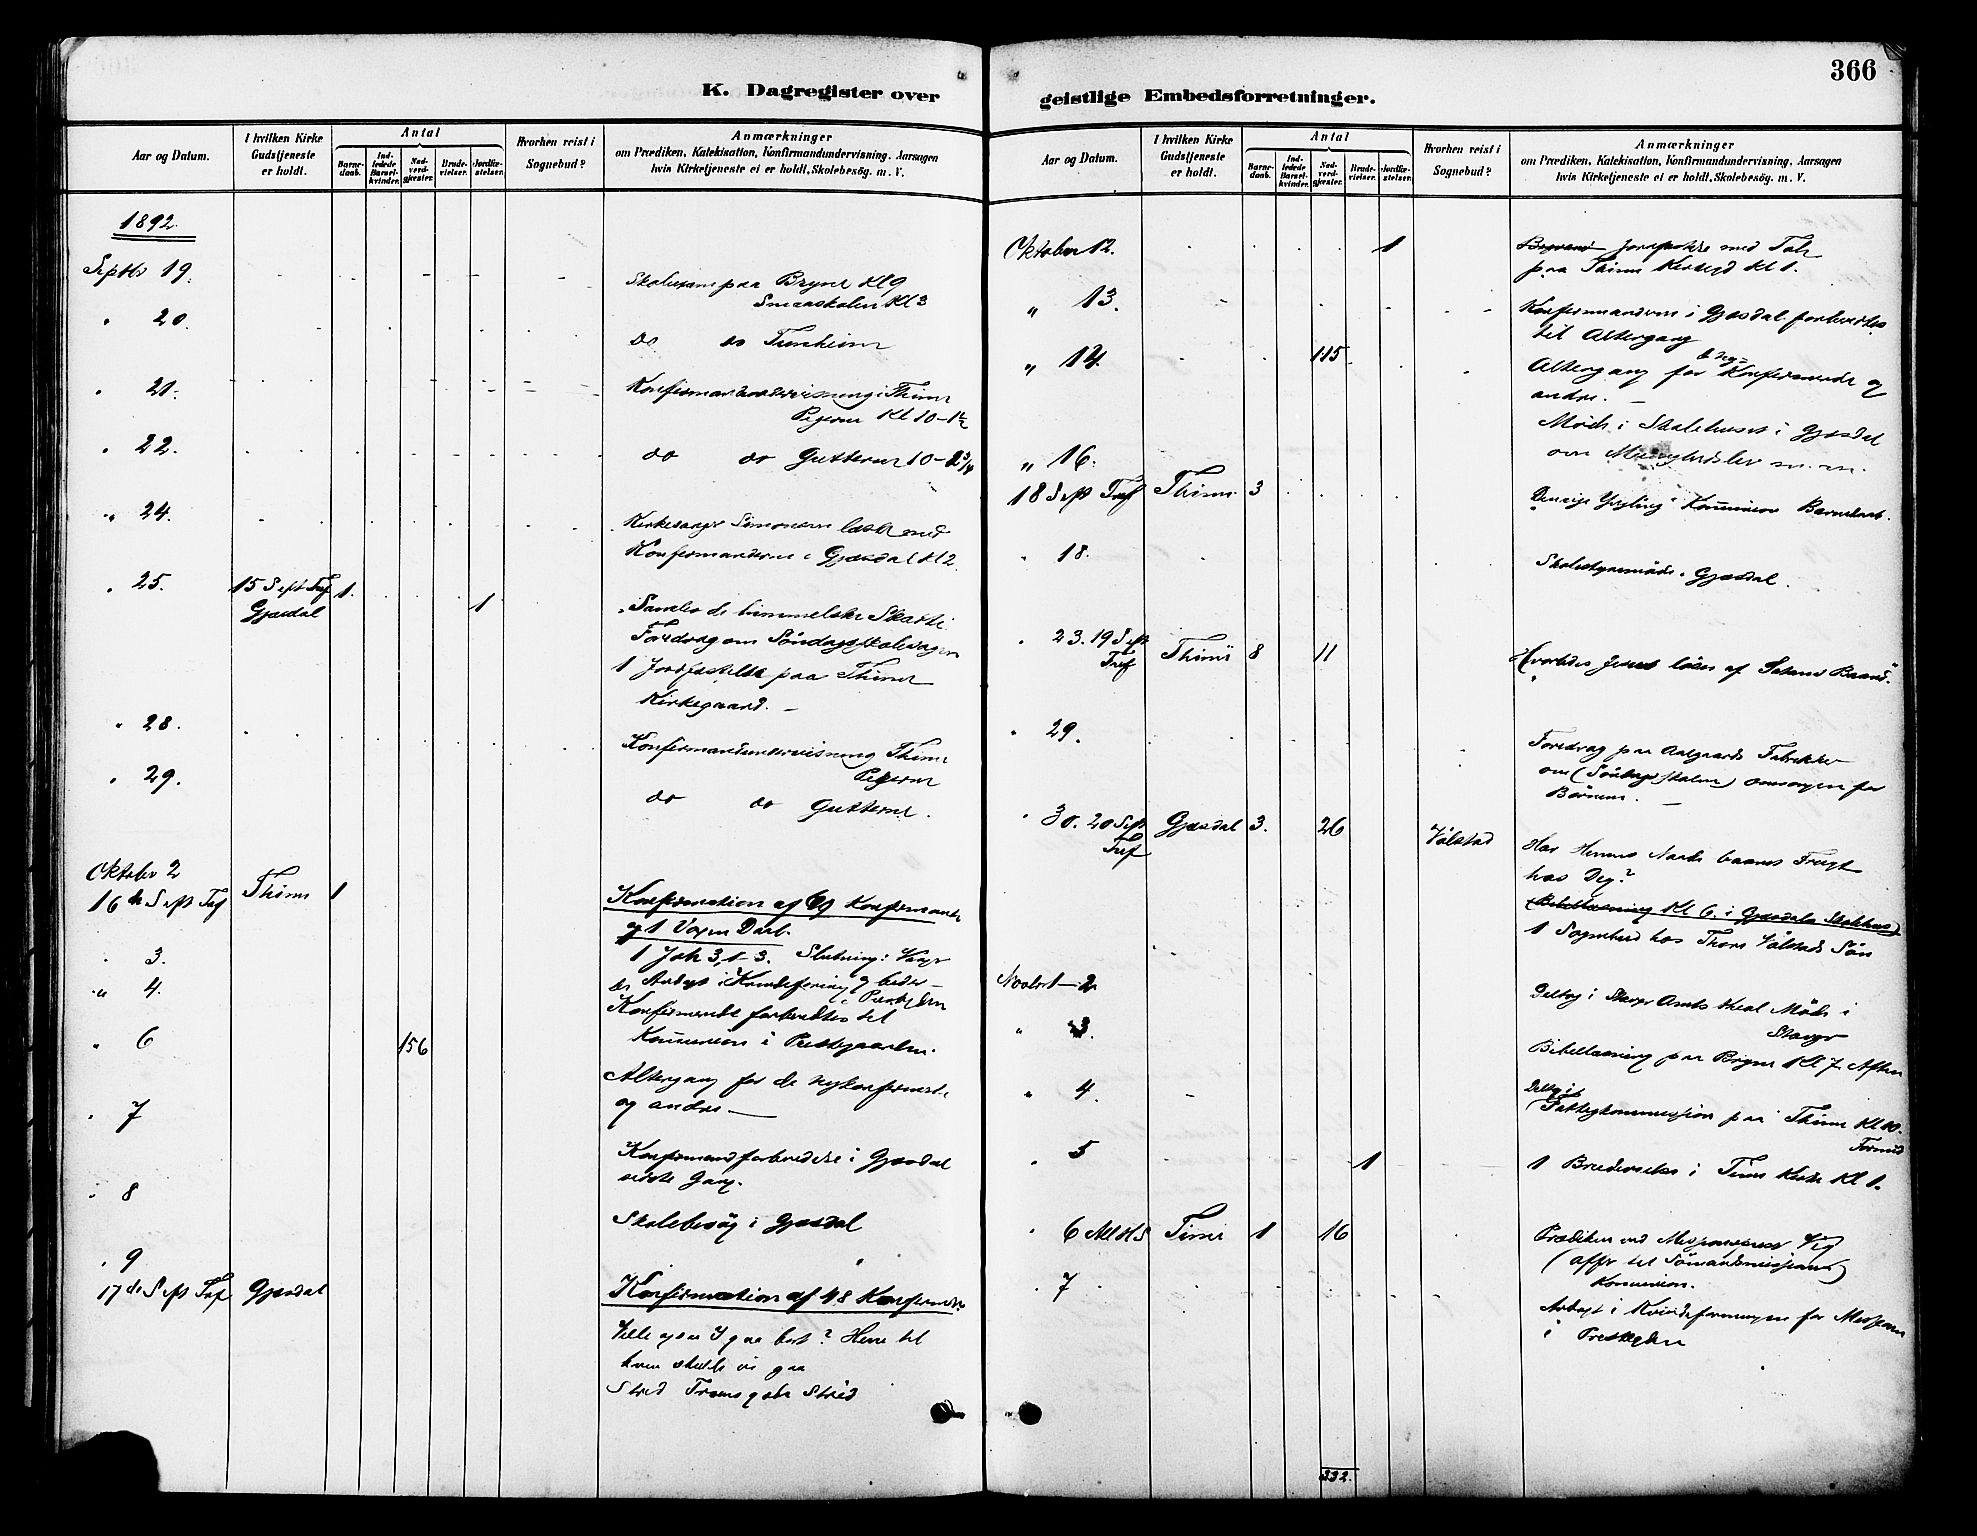 366
K. Dagregister over
geistlige Embedsforretninger.
Aar og Datum.
I hvilken Kirke
Gudstjeneste
er holdt.
Antal
Barne-
daab.
Ind-
ledede
Barsel-
kvinder.
Nad-
verd-
gjæster.
Brude-
vielser.
Jordfæ-
stelser.
Hvorhen reist i
Sognebud?
Anmærkninger
om Prædiken, Katekisation, Konfirmandundervisning, Aarsagen
hvis Kirketjeneste ei er holdt, Skolebesøg. m. V.
1892.
Septbr 19. Skolexam paa Bryne Kl 9
Smaaskolen Kl 3
" 20. do do Tunheim
" 21. Konfirmandundervisning i Thime
Pigerne Kl 10-1½
" 22. do do Gutterne 10-
" 24. Kirkesanger Simonsen læste med
Konfirmanderne i Gjæsdal Kl 2.
" 25. 15 Sept Tref 1. 1
Gjæsdal
Samler de himmelske Skatte.
Foredrag om Söndagsskolesagen
1 Jordfæstelse paa Thime
Kirkegaard. -
" 28. Konfirmandundervisning Thime
Pigerne
" 29. do do Gutterne.
Oktober 2
16 de Sept Tref Thime 1
Konfirmation af 69 Konfirmander
og 1 Voxen Daab.
1 Joh 3,1-3. Slutning: Vaager
" 3. og beder -
" 4. Konfirmerede forberedtes til
Kommunion i Prestegaarden.
" 6 156
Altergang for de nykonfirmerte
og andre -
" 7
Konfirmandforberedelse i Gjæsdal
sidste Gang.
" 8
Skolebesög i Gjæsdal
" 9
17 de Sept Tref Gjæsdal
Konfirmation af 48 Konfirmander
Ville ogsaa I gaa bort? Herre til
hvem skulle vi gaa
Strid Troens gode Strid
Aar og Datum.
I hvilken Kirke
Gudstjeneste
er holdt.
Antal
Barne-
daab.
Ind-
ledede
Barsel-
kvinder.
Nad-
verd-
gjæster.
Brude-
vielser.
Jordfæ-
stelser.
Hvorhen reist i
Sognebud?
Anmærkninger
om Prædiken, Katekisation, Konfirmandundervisning, Aarsagen
hvis Kirketjeneste ei er holdt, Skolebesøg. m. V.
Oktober 12. 1 Jordfæstelse med Tale
paa Thime Kl 1.
" 13. Konfirmanderne i Gjæsdal forberedtes
til Altergang
" 14. 115 Altergang for Konfirmerede og
andre. -
" 16. Möde i Skolehuset i Gjæsdal
om m.m.
18 Sept Tref Thime 3 Yngling Kommunion Barnedaab.
" 18. Skolestyremöde i Gjæsdal.
" 23. 19 Sept
Tref Thime 8 11 Hvorledes Jesus löser af Satans Baand.
" 29. Foredrag paa Aalgaards Fabrikker
om (Söndagsskolen) omsorgen for
Börnene. -
" 30. 20 Sept
Tref Gjæsdal 3. 26 Válstad
Har Herrens Naade baaret Frugt
hos Dig?
(Bibellæsning Kl 6. i Gjæsdals Skolehus)
1 Sognebud hos Thore Válstads Sön
Novbr 2 Deltog i Amts Möde i
Stavgr
" 3. Bibellæsning paa Bryne Kl 7 Aften
" 4. Deltog i
Fattigkommission paa Thime Kl 10.
Formid
" 5 1 1 Brudevielse i Time Kirke Kl 1.
" 6 Time 1 16 Prædiken ved
(offer til Sömandsmissionen)
Kommunion.
" 7 Andagt i Kvindeforeningen for Missionen
i
332.